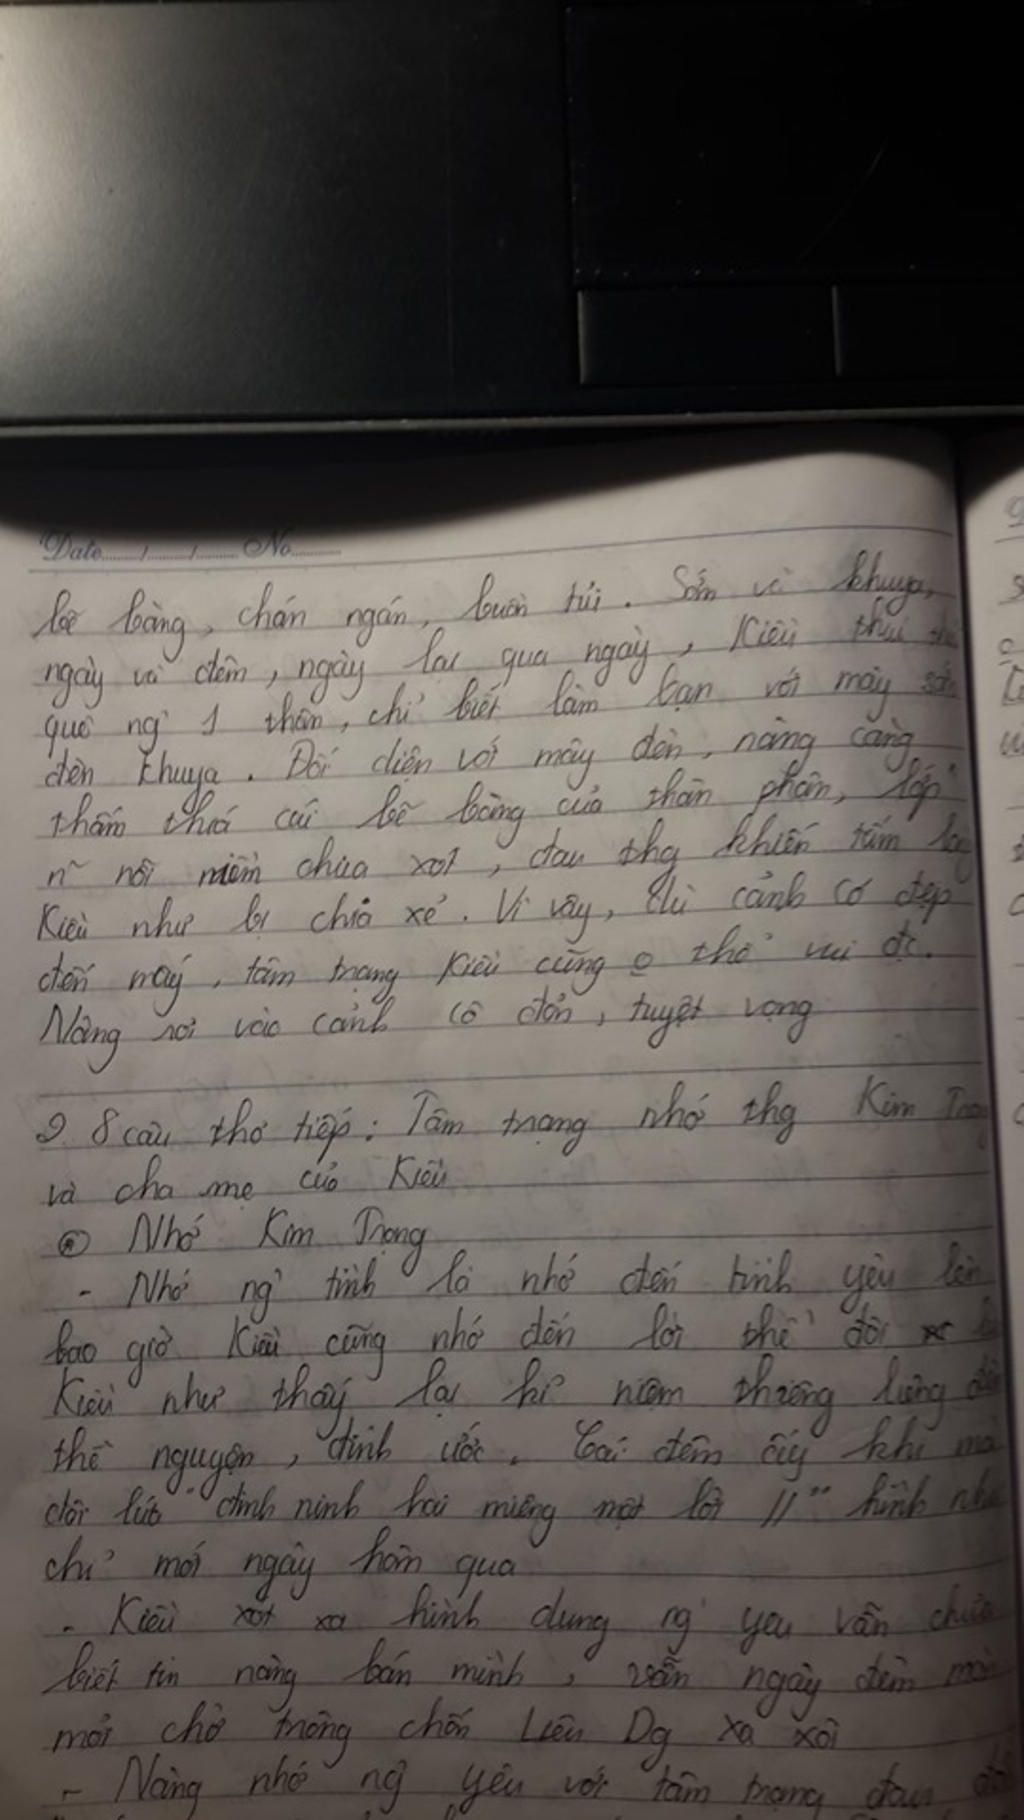 Date....../....../...... No........
bẽ bàng, chán ngán, buồn tủi. Sớm và khuya,
ngày và đêm, ngày lại qua ngày, Kiều thui
quê ng' 1 thân, chỉ biết làm bạn với mây sớm
đèn khuya. Đối diện với mây đèn, nàng càng
thấm thía cái bẽ bàng của thân phận, lớp
n~ nỗi niềm chua xót, đau thg khiến tấm lòng
Kiều như bị chia xẻ. Vì vậy, dù cảnh có đẹp
đến mấy, tâm trạng Kiều cũng o thể vui đc.
Nàng rơi vào cảnh cô đơn, tuyệt vọng
2. 8 câu thơ tiếp: Tâm trạng nhớ thg Kim Trọng
và cha mẹ của Kiều
Nhớ Kim Trọng
- Nhớ ng' tình là nhớ đến tình yêu lên
bao giờ Kiều cũng nhớ đến lời thề đôi
Kiều như thấy lại kỉ niệm thiêng liêng đêm
thề nguyện, đính ước. Cái đêm ấy khi mà
đôi lứa "đinh ninh hai miệng một lời //" hình như
chỉ mới ngày hôm qua
- Kiều xót xa hình dung ng' yêu vẫn chưa
biết tin nàng bán mình, vẫn ngày đêm mòn
mỏi chờ trông chốn Liêu Dg xa xôi
- Nàng nhớ ng' yêu với tâm trạng đau